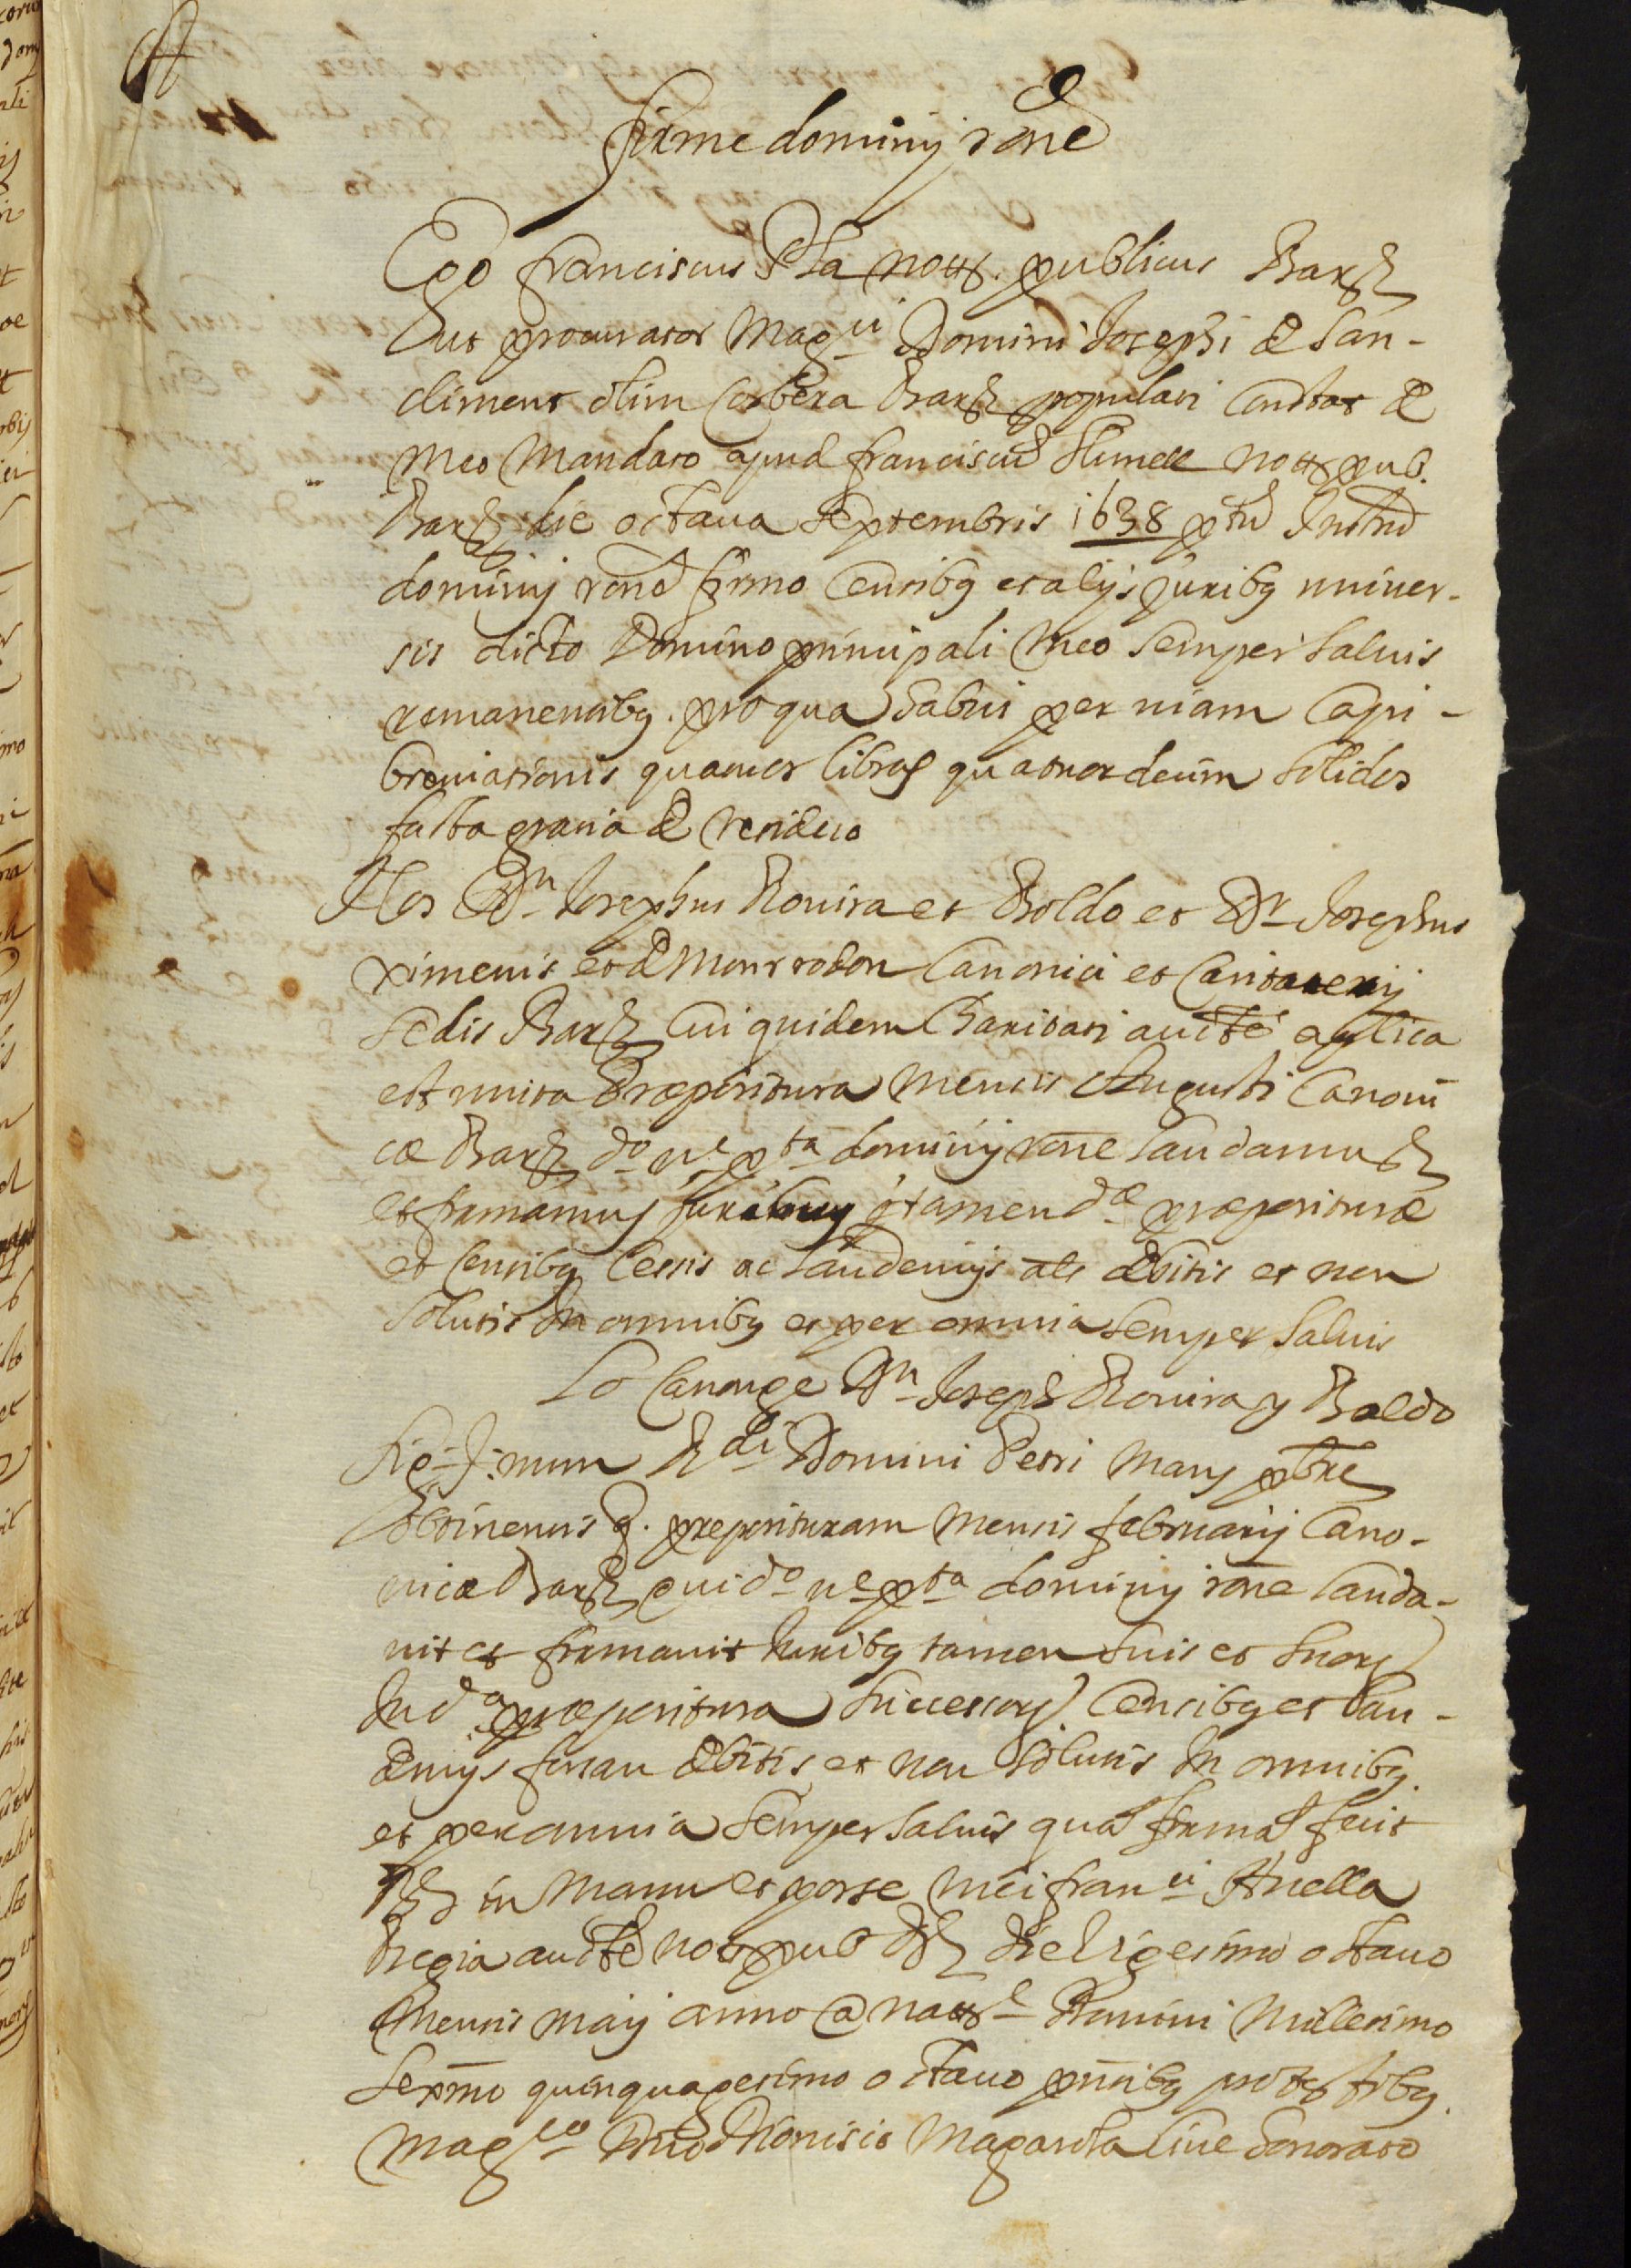 firme dominij rōne
Ego franciscus Pla nottˢ. publicus Barᶜⁿ
ut procurator Magᶜⁱ Domini Josephi de San-
climent olim Corbera Barᶜⁿ populati constat de
meo mandato apud franciscū nottˢ pub.
Barᶜⁿ die octaua septembris 1638 pᵗū Instrū
dominij rōne firmo Censibq et alijs juribq uniuer-
sis dicto Domino principali meo semper saluis
remanentibq. pro qua habui per niam Capi-
breuiationis quatuor libras quatuordecim solidos
facta gratia de residuo
Nos Dⁿ Josephus Rouira et Boldo et Dʳ Josephus
ximenis et de Montrodon Canonici et Caritaterij
sedis Barᶜⁿ Cui quidem Charitati aucte aplica
est unita Præpositura mensis Augusti Canoni
cæ Barᶜⁿ dᵒ nᵉ pᵗᵃ dominij rōne laudamus
et firmamus juribus tamen dᵃᵉ præposituræ
et Censibq Cessis ac laudemijs als debitis et non
solutis In omnibq et per omnia semper saluis
Lo Canonge Dⁿ Joseph Rouira y Boldo
Sig-†-num Rᵈⁱ Domini Petri Mary pbre
obtinentis q. preposituram mensis februarij Cano-
nicæ Barᶜⁿ qui dᵒ nᵉ pᵗᵃ dominij rōne lauda-
uit et firmauit Juribq tamen suis et suorꝝ
In dᵃ præpositura successorꝝ Censibq et lau-
demijs forsan debitis et non solutis In omnibq.
et per omnia semper saluis quā firmā fecit
in manu et posse mei franᶜⁱ
Regia aucte nottˢ pub Bᶜⁿ die Vigesimo octauo
mensis maij anno a natᵉ Domini Millesimo
sexmo quinquagesimo octauo pntibq pro testibq.
Magᶜᵒ Dno Dionisio Magarola Ciue honorato